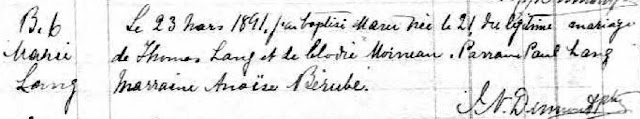 B. 6
Marie
Lang
Le 23 mars 1891, j'ai baptisé Marie née le 21 du légitime mariage
de Thomas Lang et de Elodie Moineau. Parrain Paul Lang
Marraine Anaïse Bérubé.
J. N.